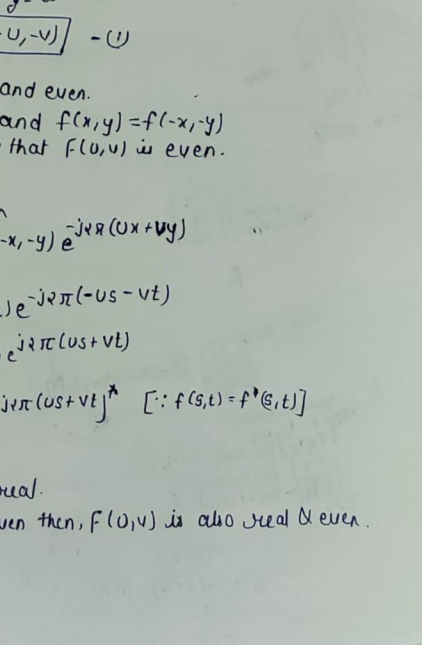 -U,-V) -①
and even.
and f(x,y)=f(-x,-y)
that F(U,V) is even.
-x,-y) e^-j2π(Ux+Vy)
)e^-j2π(-Us-Vt)
e^j2π(Us+Vt)
j2π(Us+Vt)^* [∵ f(s,t)=f*(s,t)]
real.
ven then, F(U,V) is also real & even.